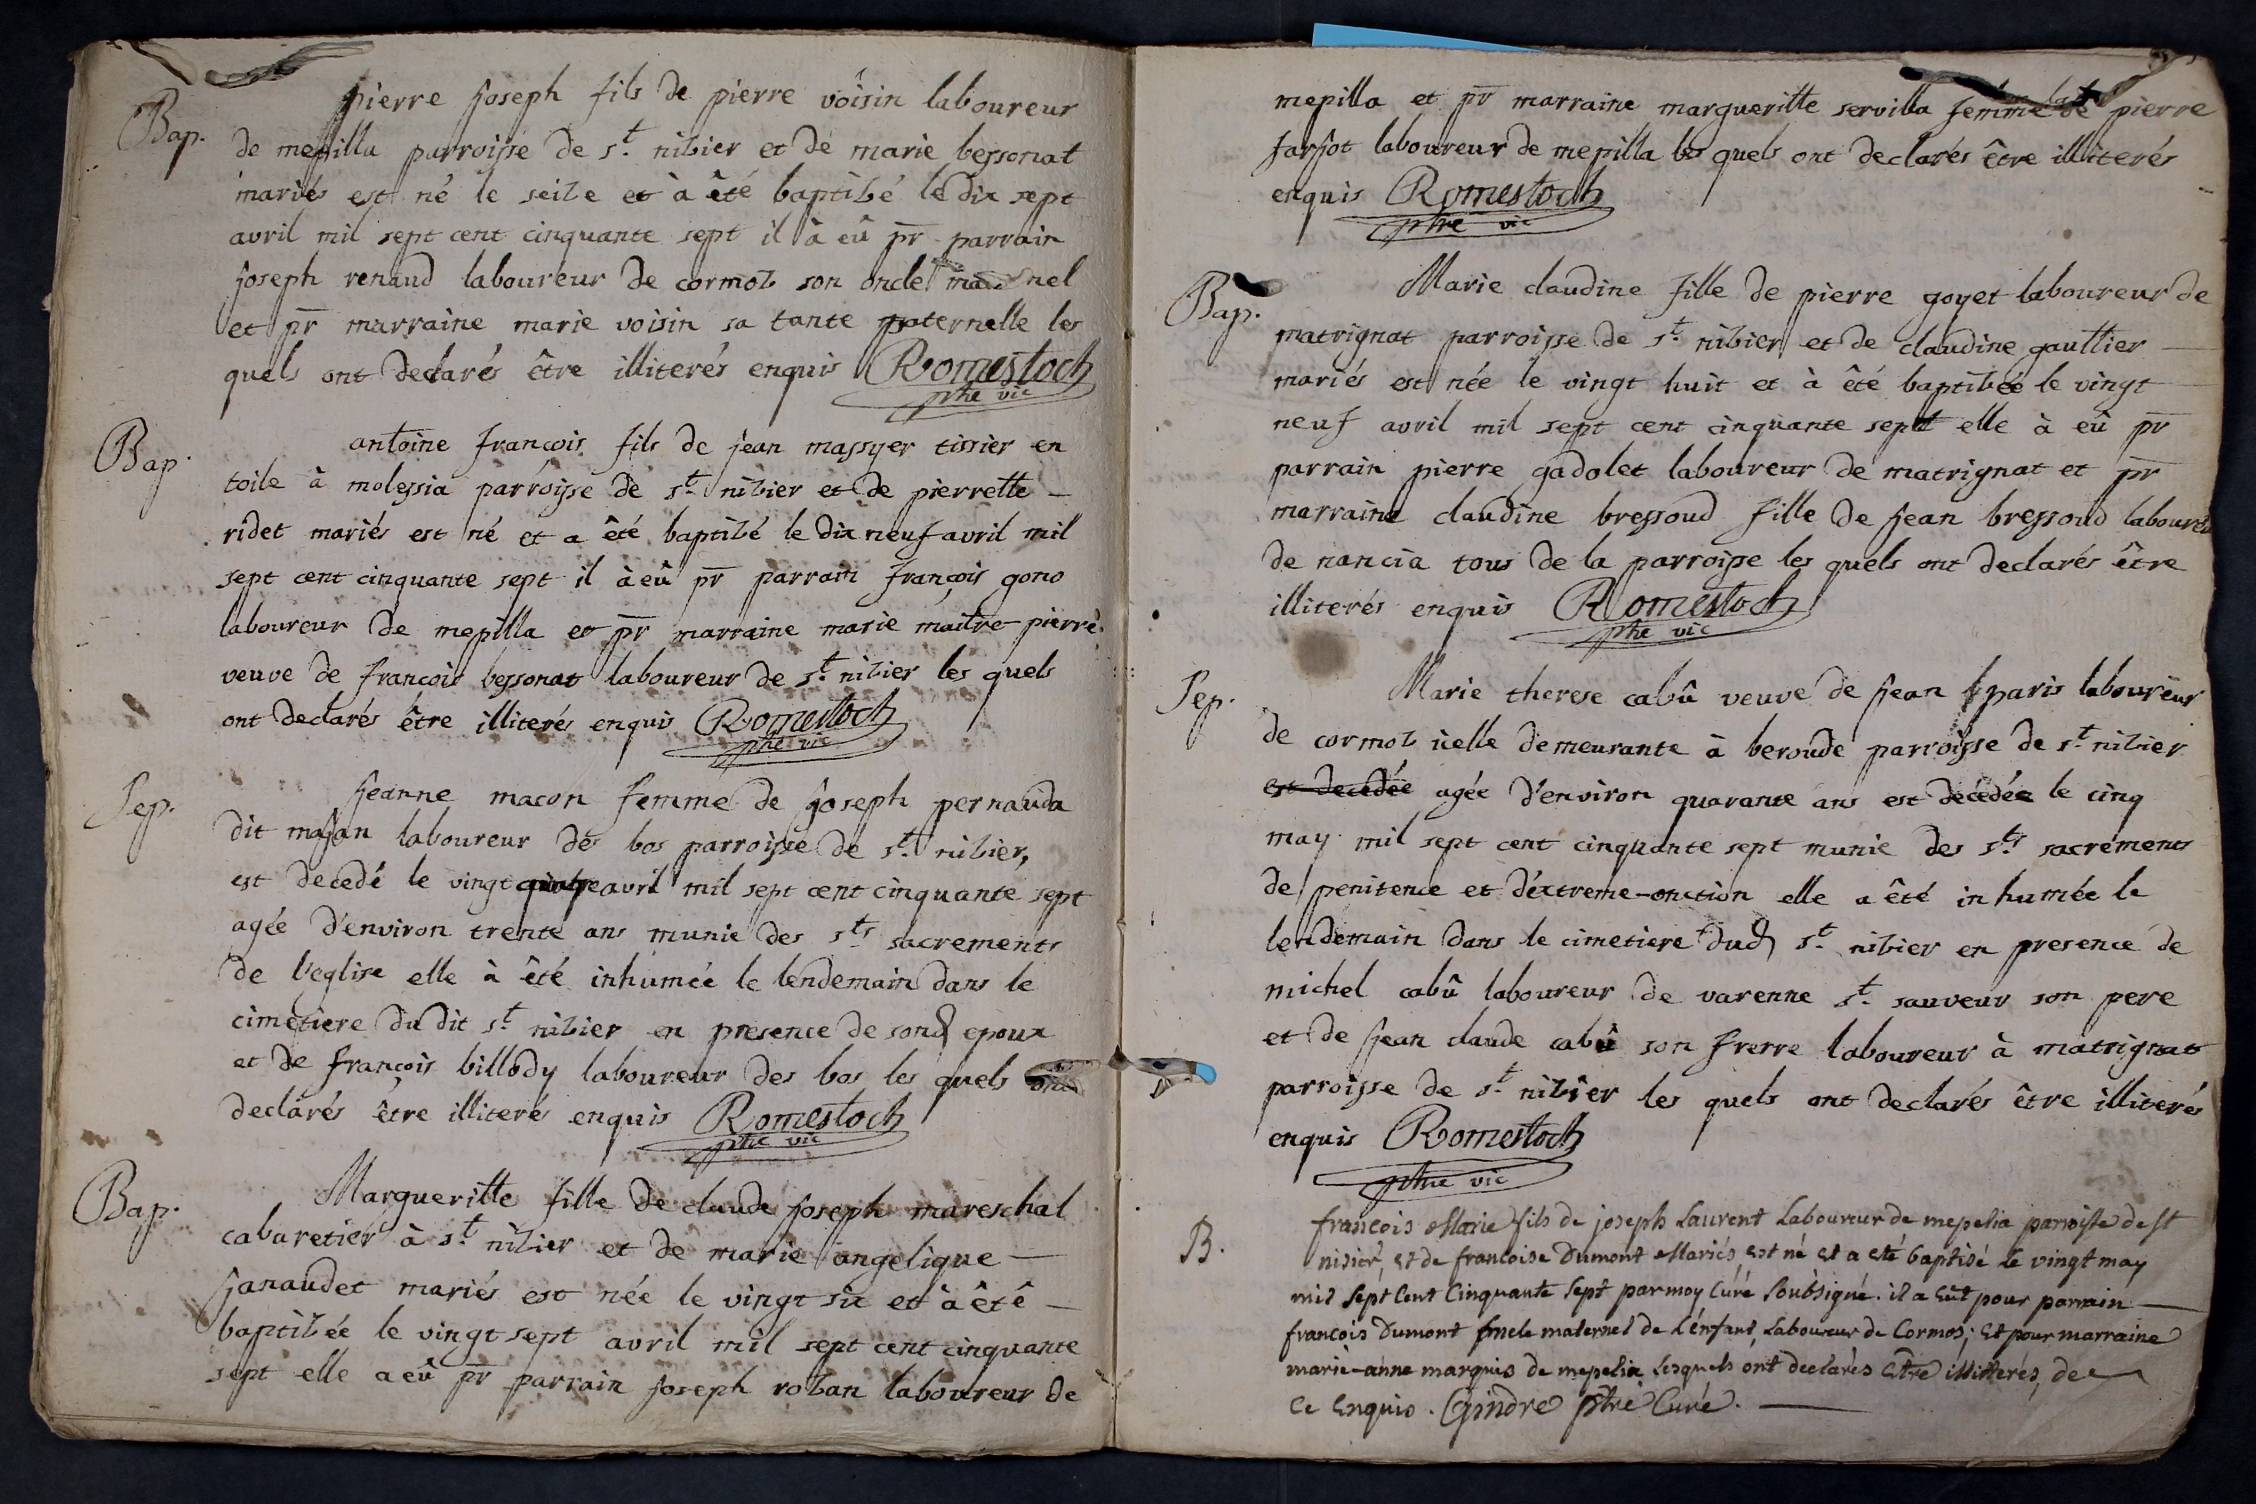 Bap. pierre joseph fils de pierre voisin laboureur
de mepilla parroisse de st nizier et de marie bessonat
mariés est né le seize et à êté baptizé le dix sept
avril mil sept cent cinquante sept il à eû pr parrain
joseph renaud laboureur de cormoz son oncle
et pr marraine marie voisin sa tante paternelle les
quels ont declarés être illiterés enquis Romestoch
ptre vic
Bap. antoine françois fils de jean massyer tissier en
toile à molessia parroisse de st nizier et de pierrette
ridet mariés est né et a êté baptizé le dix neuf avril mil
sept cent cinquante sept il à eû pr parrain françois gono
laboureur de mepilla et pr marraine marie maitre pierre
veuve de françois bessonat laboureur de st nizier les quels
ont declarés être illiterés enquis Romestoch
ptre vic
Sep. jeanne macon femme de joseph pernauda
dit majan laboureur des bos parroisse de st nizier,
est decedé le vingt quatre avril mil sept cent cinquante sept
agée d'environ trente ans munie des sts sacrements
de l'eglise elle à êté inhumée le lendemain dans le
cimetiere du dit st nizier en presence de sond epoux
et de françois billody laboureur des bos les quels ont
declarés être illiterés enquis Romestoch
ptre vic
Bap. Margueritte fille de claude joseph mareschal
cabaretier à st nizier et de marie angelique
janaudet mariés est née le vingt six et à êté
baptizée le vingt sept avril mil sept cent cinquante
sept elle a eû pr parrain joseph rozan laboureur de
mepilla et pr marraine margueritte servilla femme de pierre
farjot laboureur de mepilla les quels ont declarés être illiterés
enquis Romestoch
ptre vic
Bap. Marie claudine fille de pierre goyet laboureur de
matrignat parroisse de st nizier et de claudine gaultier
mariés est née le vingt huit et à êté baptizée le vingt
neuf avril mil sept cent cinquante sept elle à eû pr
parrain pierre gadolet laboureur de matrignat et pr
marraine claudine bressoud fille de jean bressoud laboureur
de nancia tous de la parroisse les quels ont declarés être
illiterés enquis Romestoch
ptre vic
Sep. Marie therese cabû veuve de jean paris laboureur
de cormoz icelle demeurante à beroude parroisse de st nizier
est decedée agée d'environ quarante ans est decedée le cinq
may mil sept cent cinquante sept munie des sts sacrements
de penitence et d'extreme-onction elle a êté inhumée le
lendemain dans le cimetiere dud st nizier en presence de
michel cabû laboureur de varenne st sauveur son pere
et de jean claude cabû son frerre laboureur à matrignat
parroisse de st nizier les quels ont declarés être illiterés
enquis Romestoch
ptre vic
B. françois Marie fils de joseph Laurent Laboureur de mepelia parroisse de st
nisier, et de francoise Dumont Mariés, est né et a eté baptisé le vingt may
mil sept Cent Cinquante Sept par moy Curé Soubsigné. il a eût pour parrain
françois Dumont oncle maternel de L'enfant, Laboureur de Cormos; et pour marraine
marie-anne marquis de mepelia, Lesquels ont declarés etre illitterés, de
Ce Enquis. Gindre ptre Curé.